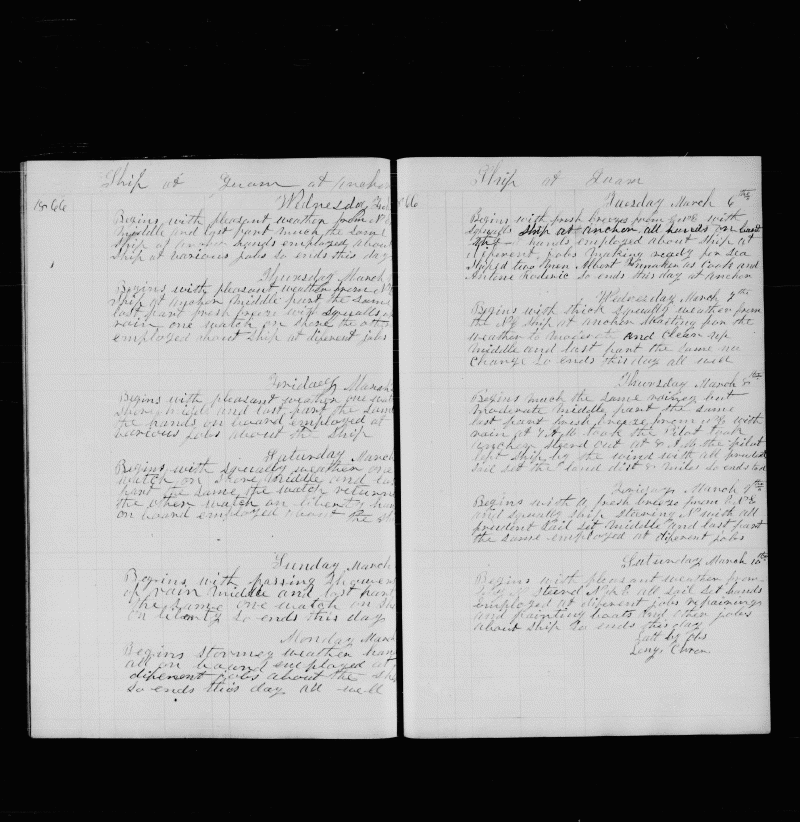 Ship at Guam at anchor
1866
Wednesday
Begins with pleasant weather from N E
Middle and last part much the same
Ship at anchor hands employed about
Ship at various jobs so ends this day
Thursday March
Begins with pleasant weather from N E
Ship at anchor middle part the same
last part fresh breeze with squalls of
rain one watch on shore the other
employed about Ship at diferent jobs
Friday March
Begins with pleasant weather one watch
shore middle and last part the same
the hands on board employed at
various jobs about the Ship
Saturday March
Begins with squally weather one
watch on shore middle and last
part the same the watch returned
the other watch on liberty hands
on board employed about the Sh
Sunday March
Begins with passing showers
of rain middle and last part
the same one watch on sh
on liberty so ends this day
Monday March
Begins stormey weather hands
all on board employed at
diferent jobs about the sh
so ends this day all well
Ship at Guam
66
Tuesday March 6th
Begins with fresh breezes from with
squalls Ship at anchor all hands on board
hands employed about Ship at
diferent jobs making ready for sea
Shiped two men Albert as Cook and
Antone so ends this day at anchor
Wednesday March 7th
Begins with thick squally weather from
the NE Ship at anchor waiting for the
weather to moderate and clear up
middle and last part the same no
change so ends this day all well
Thursday March 8th
Begins much the same rainey but
moderate middle part the same
last part fresh breeze from NE with
rain at 7 AM took the Pilot took
anchor steerd out at 8 AM the pilot
left ship by the wind with all prudent
sail set the land dist 8 miles so ends
Friday March 9th
Begins with a fresh breeze from NNE
and squally ship steering N with all
prudent sail set middle and last part
the same employed at diferent jobs
Saturday March 10th
Begins with pleasant weather from
steerd all sail set hands
employed at diferent jobs repairings
and painting boats and other jobs
about Ship So ends this day
Latt by Obs
Longi Chron